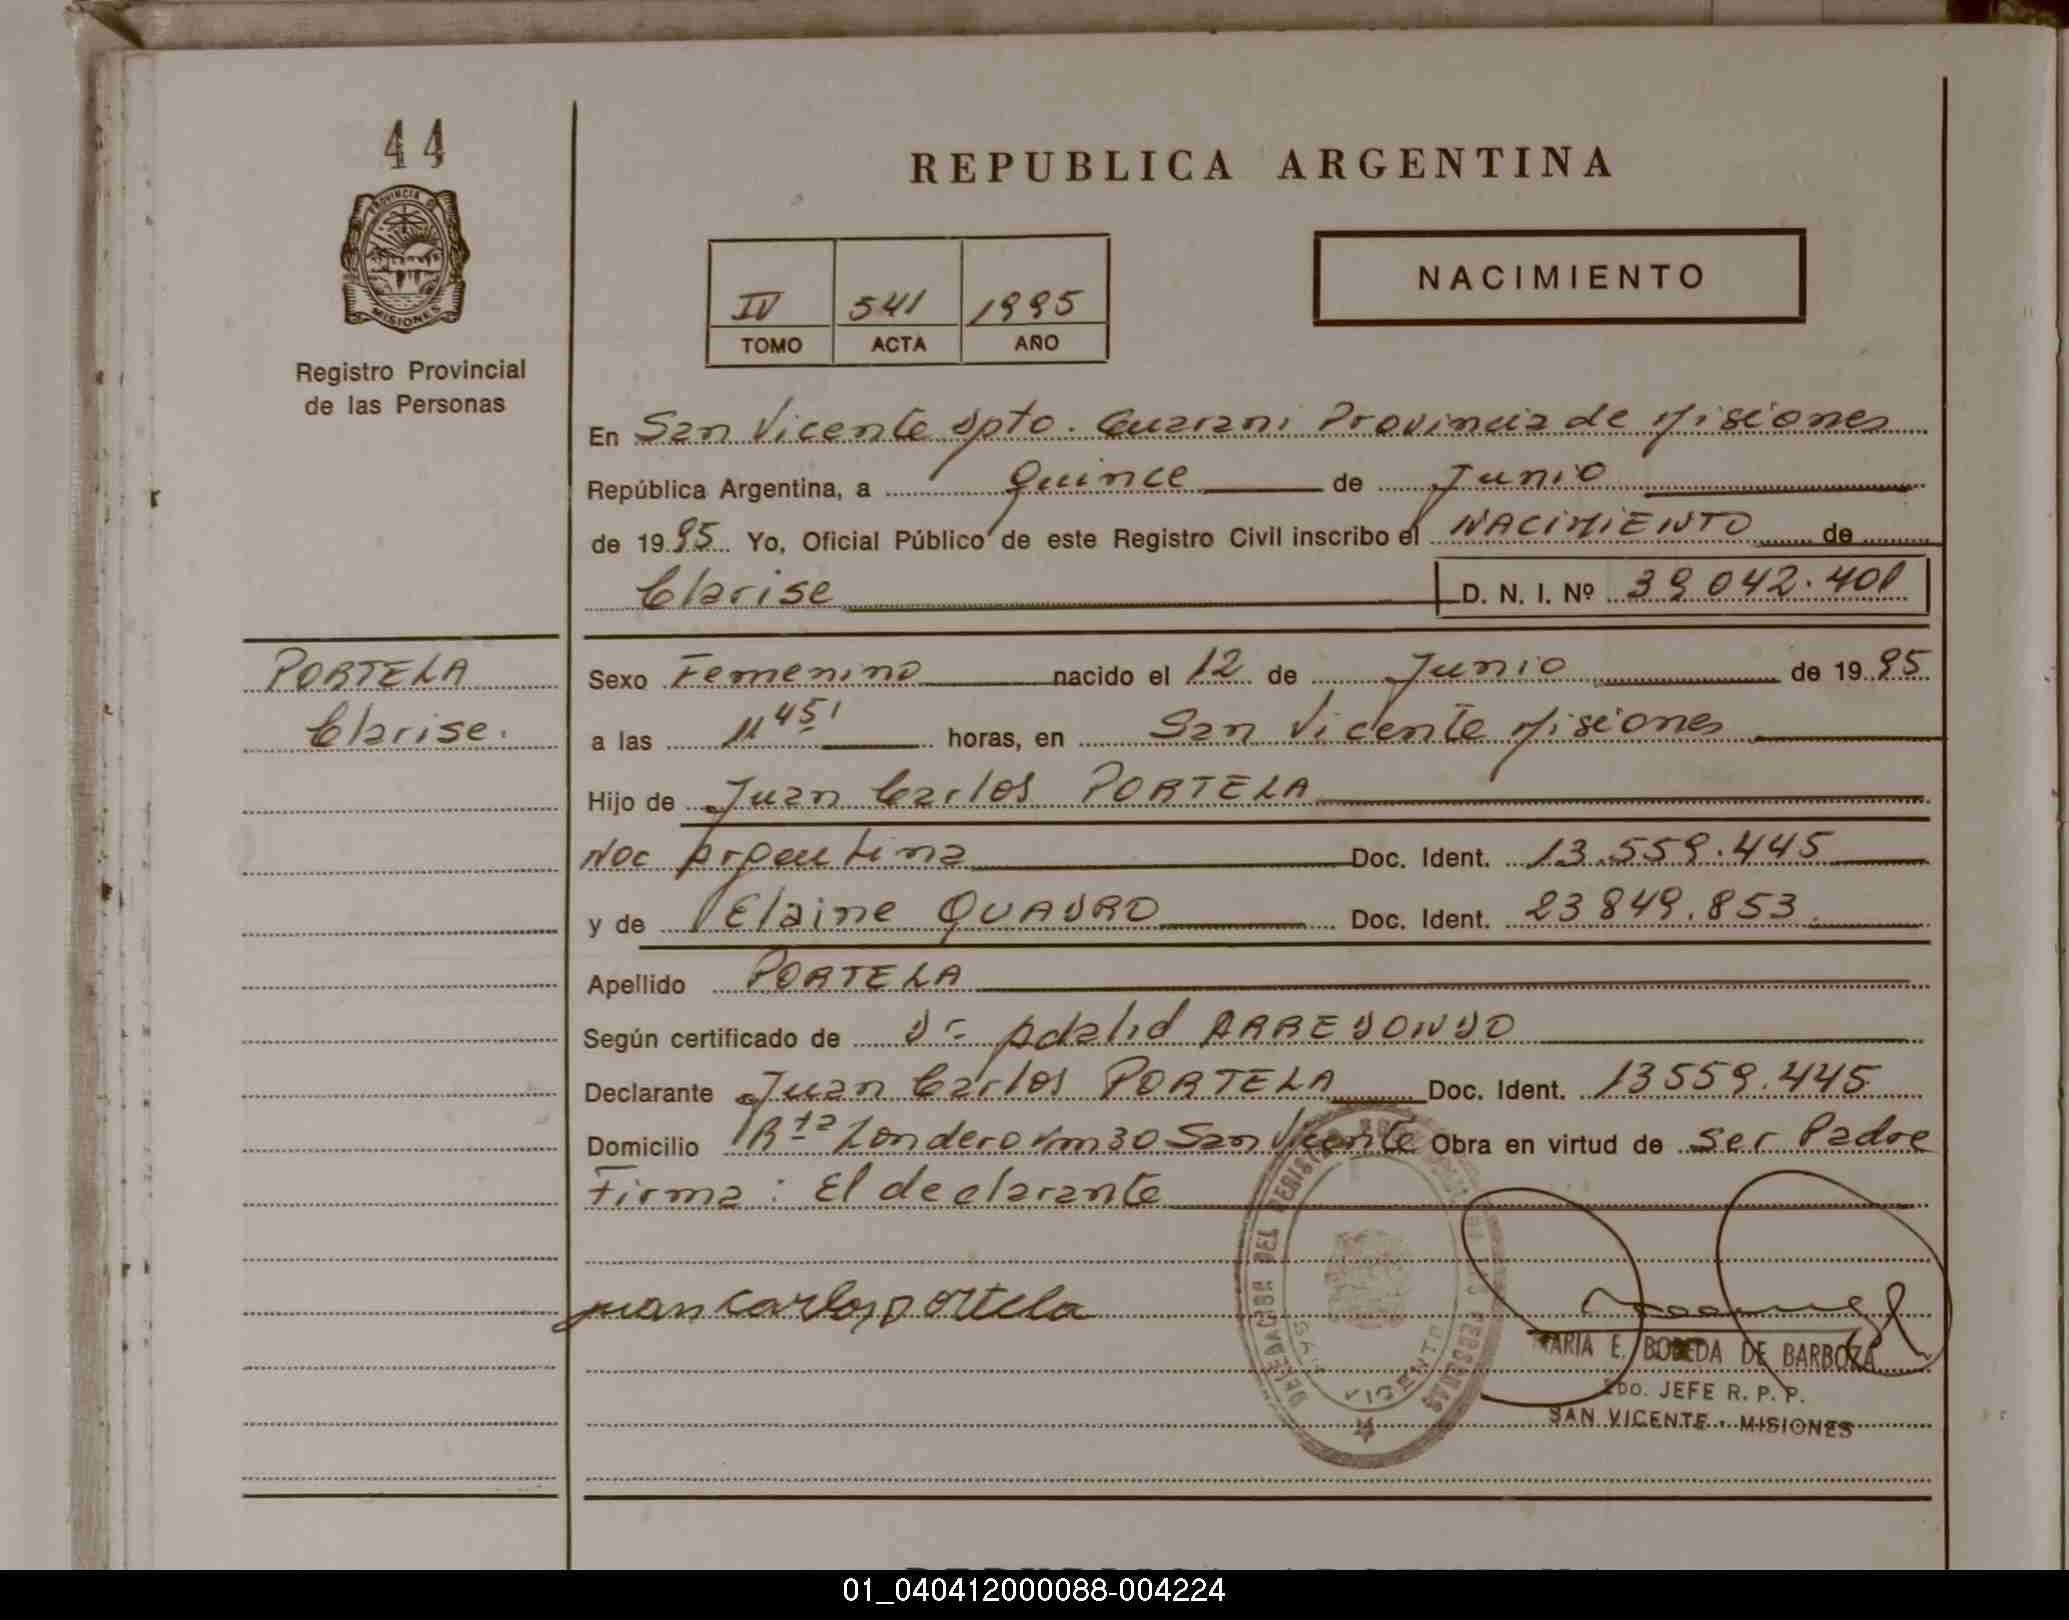 44
PROVINCIA D
MISIONES
Registro Provincial
de las Personas
REPUBLICA ARGENTINA
IV 541 1995
TOMO ACTA AÑO
NACIMIENTO
En San Vicente Dpto. Guarani Provincia de Misiones
República Argentina, a Quince de Junio
de 1995 Yo, Oficial Público de este Registro Civil inscribo el NACIMIENTO de
Clarise D. N. I. Nº 39 042.401
PORTELA
Clarise.
Sexo Femenino nacido el 12 de Junio de 1995
a las 11 45' horas, en San Vicente Misiones
Hijo de Juan Carlos PORTELA
Nac Argentina Doc. Ident. 13.559.445
y de Elaine QUADRO Doc. Ident. 23 849.853.
Apellido PORTELA
Según certificado de Dr Adalid ARREDONDO
Declarante Juan Carlos PORTELA Doc. Ident. 13559.445
Domicilio Rta Londero Km 30 San Vicente Obra en virtud de ser Padre
Firma: El declarante
juan carlos portela
DELEGACION DEL REGISTRO PERSONAS
SAN VICENTE
MARIA E. BOBEDA DE BARBOZA
2DO. JEFE R. P. P.
SAN VICENTE - MISIONES
01_040412000088-004224